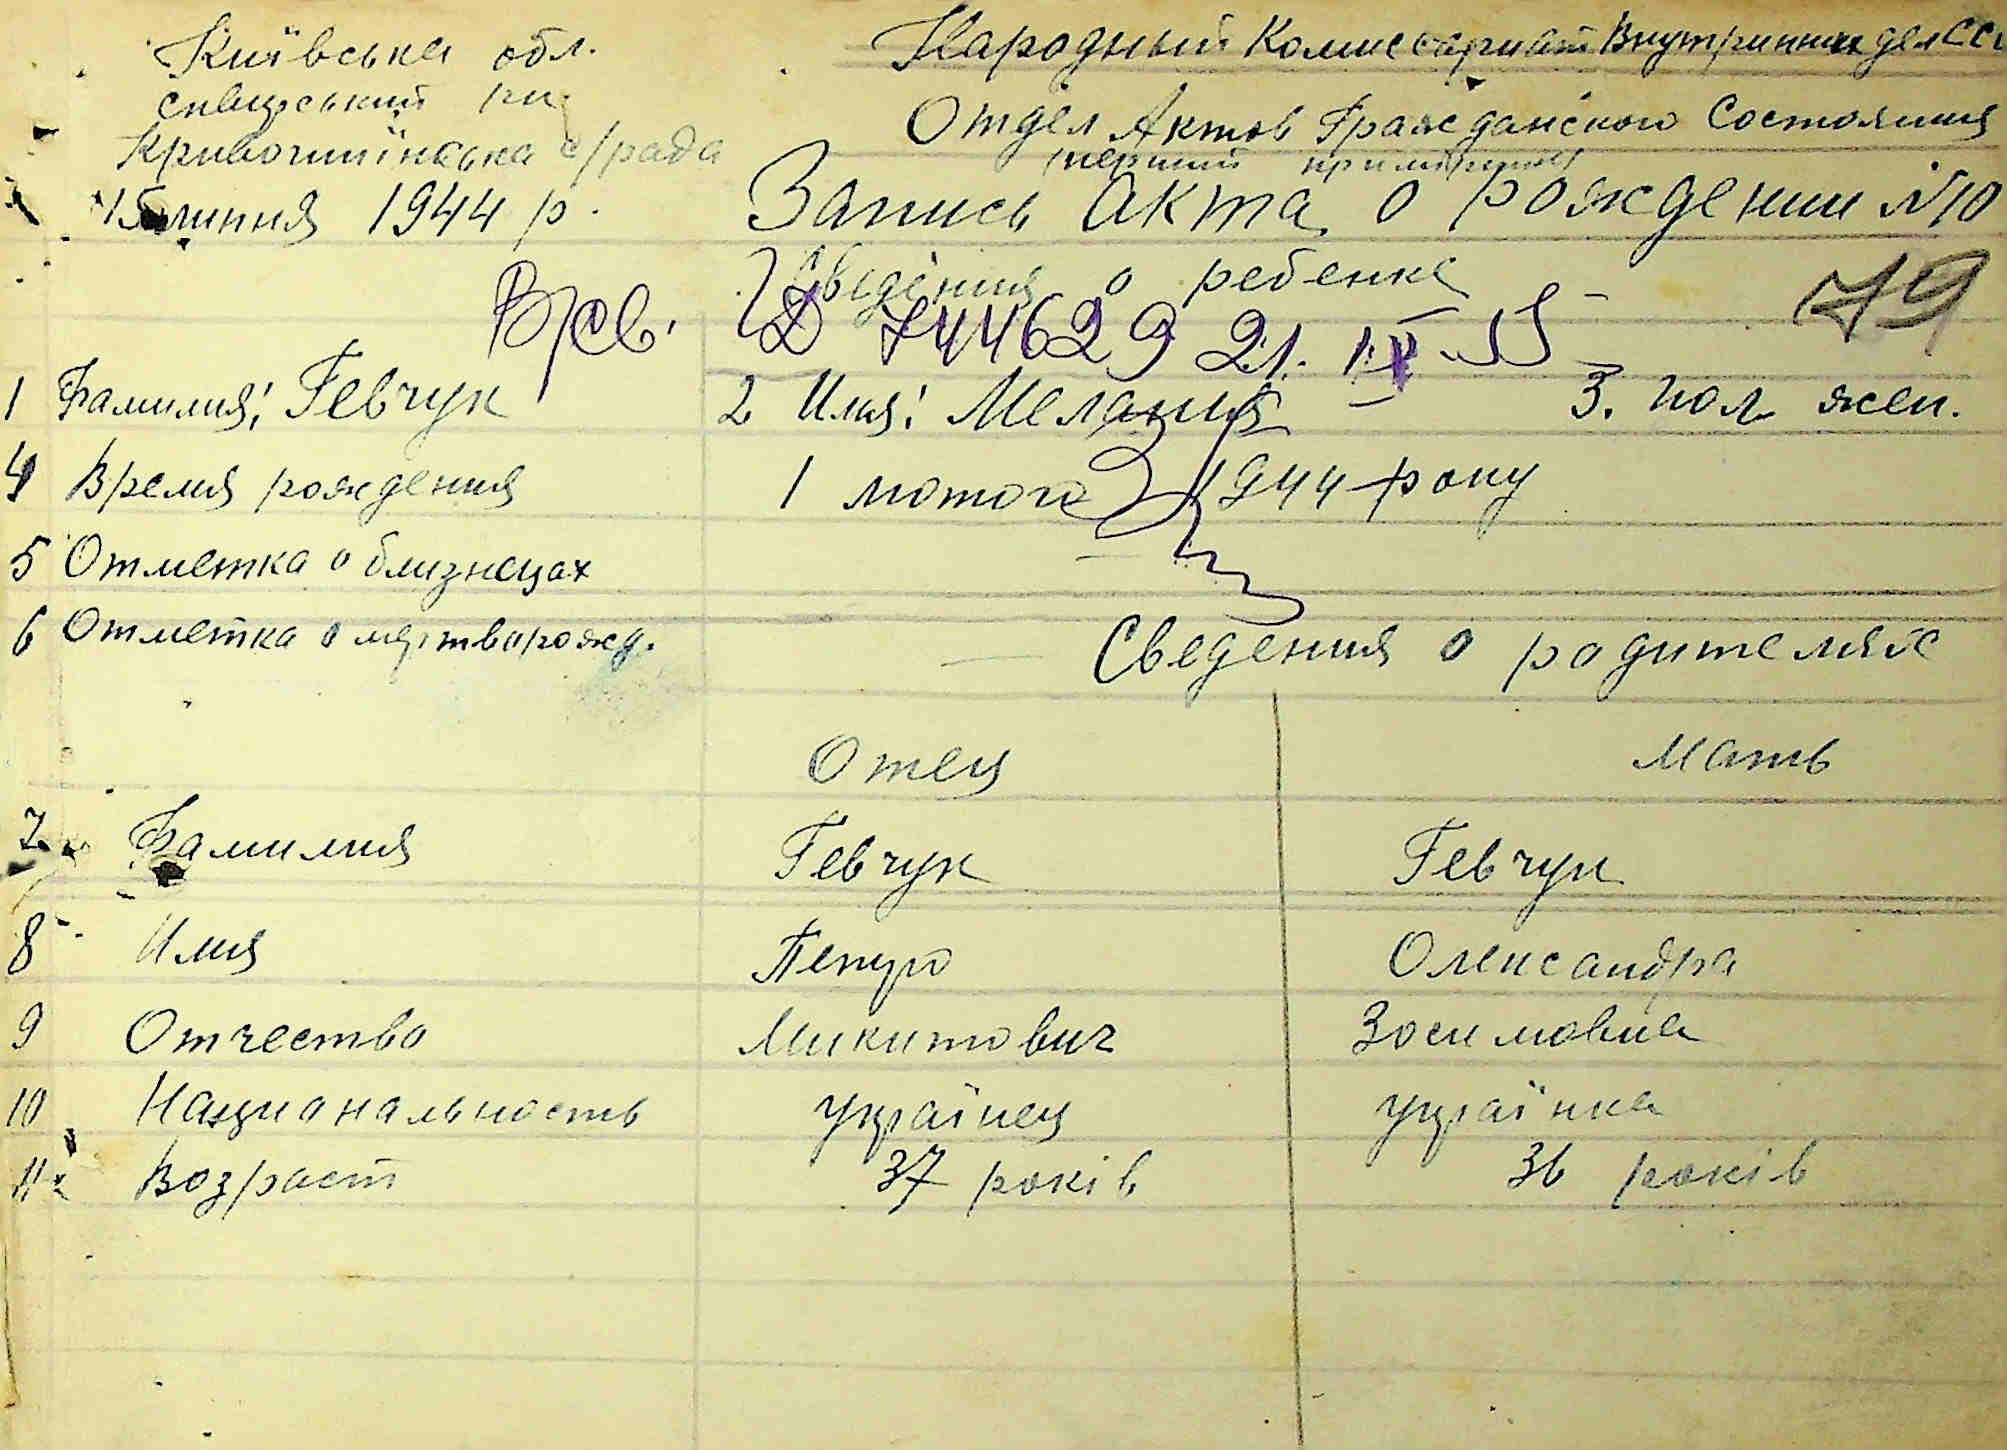 Київська обл.
сквирський рн.
Кривошиїнська с/рада
15 липня 1944 р.
Народный Комиссариат Внутринних дел ССС
Отдел Актов Гражданского Состояния
перший примірник
Запись Акта о рождении №10
Сведения о ребенке
79
В/св. 744629 21. IX. 55
1 Фамилия: Гевчук 2 Имя: Мелания 3. пол жен.
4 Время рождения 1 лютого 1944 року
5 Отметка о близнецах —
6 Отметка о мертворожд. —
Сведения о родителях
Отец Мать
7 Фамилия Гевчук Гевчук
8 Имя Петро Олександра
9 Отчество Микитович Зосимовна
10 Национальность українец українка
11 Возраст 37 років 36 років